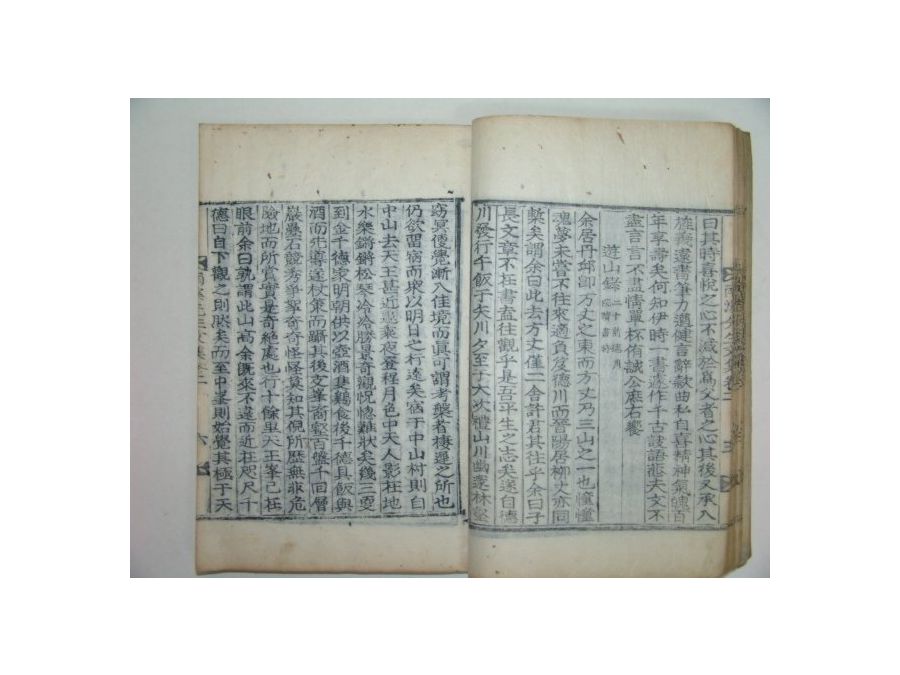 曰其時喜悅之心不減於爲父者之心其後又承入
達書筆力遒健言辭款曲私自喜精神氣魄百
年享壽矣何知伊時一書遽作千古誄語茫夫文不
盡言言不盡情單杯侑誠公庶右饗
遊山錄
余居丹邱卽方丈之東而方丈乃三山之一也憧憧
魂夢未嘗不往來適負笈德川而晉陽居柳丈亦同
槃矣謂余曰此去方丈僅一舍許君其往乎余曰子
長文章不在書盍往觀乎是吾平生之志矣遂自德
川發行千飯于矢川夕至于大坎禮山川幽邃林壑
窈冥便覺漸入佳境而眞可謂考槃者棲遲之所也
仍欲留宿而衆以明日之行遠矣宿于中山村則自
中山去天王甚近乘夜登程月色中天人影在地
水樂鏘鏘松琴泠泠勝景奇觀怳惚難狀矣幾三耍
到金千德家明朝供以壺酒隻鷄食後千德具飯與
酒而先導遂杖策而躡其後文峯商壑百盤千回層
巖疊石競秀爭挐奇奇怪怪莫知其倪所歷無非危
險地而所賞實是奇絶處也行十餘里天王峯已在
眼前余曰孰謂此山高余旣來不違而近在咫尺千
德曰自下觀之則然矣而至中峯則始覺其極于天
六